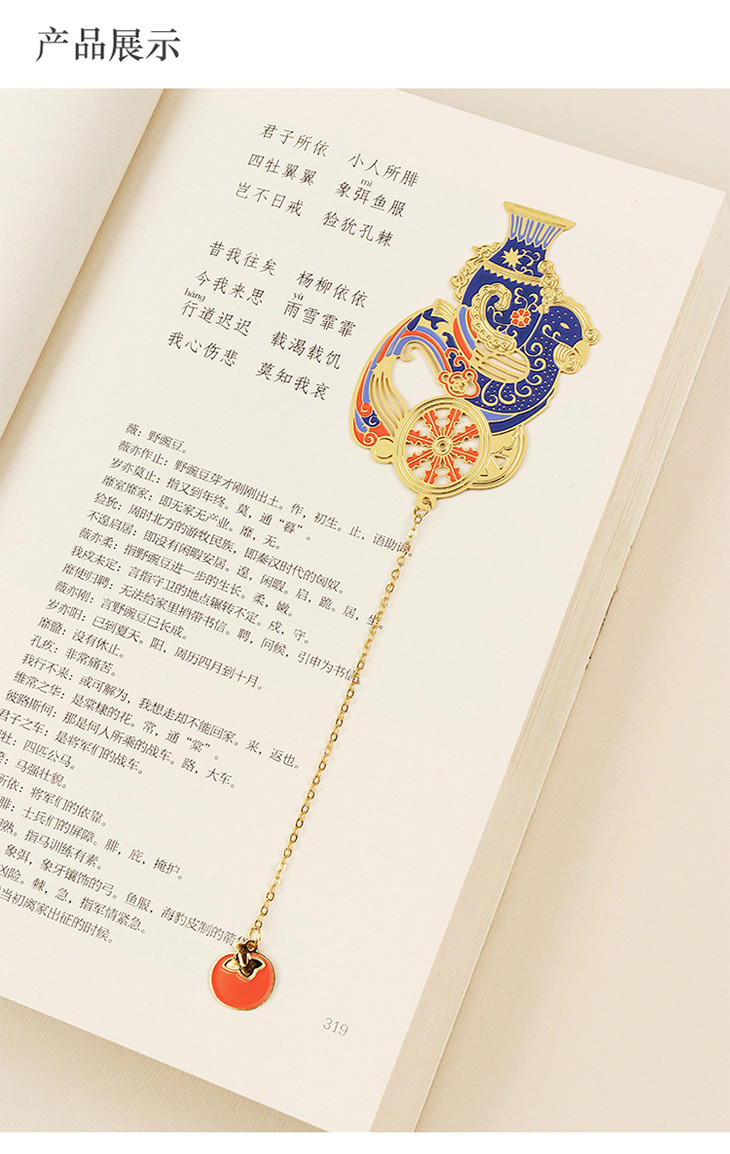 产品展示
君子所依 小人所腓
mí
四牡翼翼 象弭鱼服
岂不日戒 猃狁孔棘
昔我往矣 杨柳依依
yù
今我来思 雨雪霏霏
háng
行道迟迟 载渴载饥
我心伤悲 莫知我哀
薇：野豌豆。
薇亦作止：野豌豆芽才刚刚出土。作，初生。止，语助词。
岁亦莫止：指又到年终。莫，通“暮”。
靡室靡家：即无家无产业。靡，无。
猃狁：周时北方的游牧民族，即秦汉时代的匈奴。
不遑启居：即没有闲暇安居。遑，闲暇。启，跪。居，坐。
薇亦柔：指野豌豆进一步的生长。柔，嫩。
我戍未定：言指守卫的地点辗转不定。戍，守。
靡使归聘：无法给家里捎带书信。聘，问候，引申为书信。
薇亦刚：言野豌豆已长成。
岁亦阳：已到夏天。阳，周历四月到十月。
靡盬：没有休止。
孔疚：非常痛苦。
我行不来：或可解为，我想走却不能回家。来，返也。
维常之华：是棠棣的花。常，通“棠”。
彼路斯何：那是何人所乘的战车。路，大车。
君子之车：是将军们的战车。
牡：四匹公马。
：马强壮貌。
所依：将军们的依靠。
腓：士兵们的屏障。腓，庇，掩护。
熟。指马训练有素。
象弭，象牙镶饰的弓。鱼服，海豹皮制的箭
凶险。棘，急，指军情紧急。
当初离家出征的时候。
319